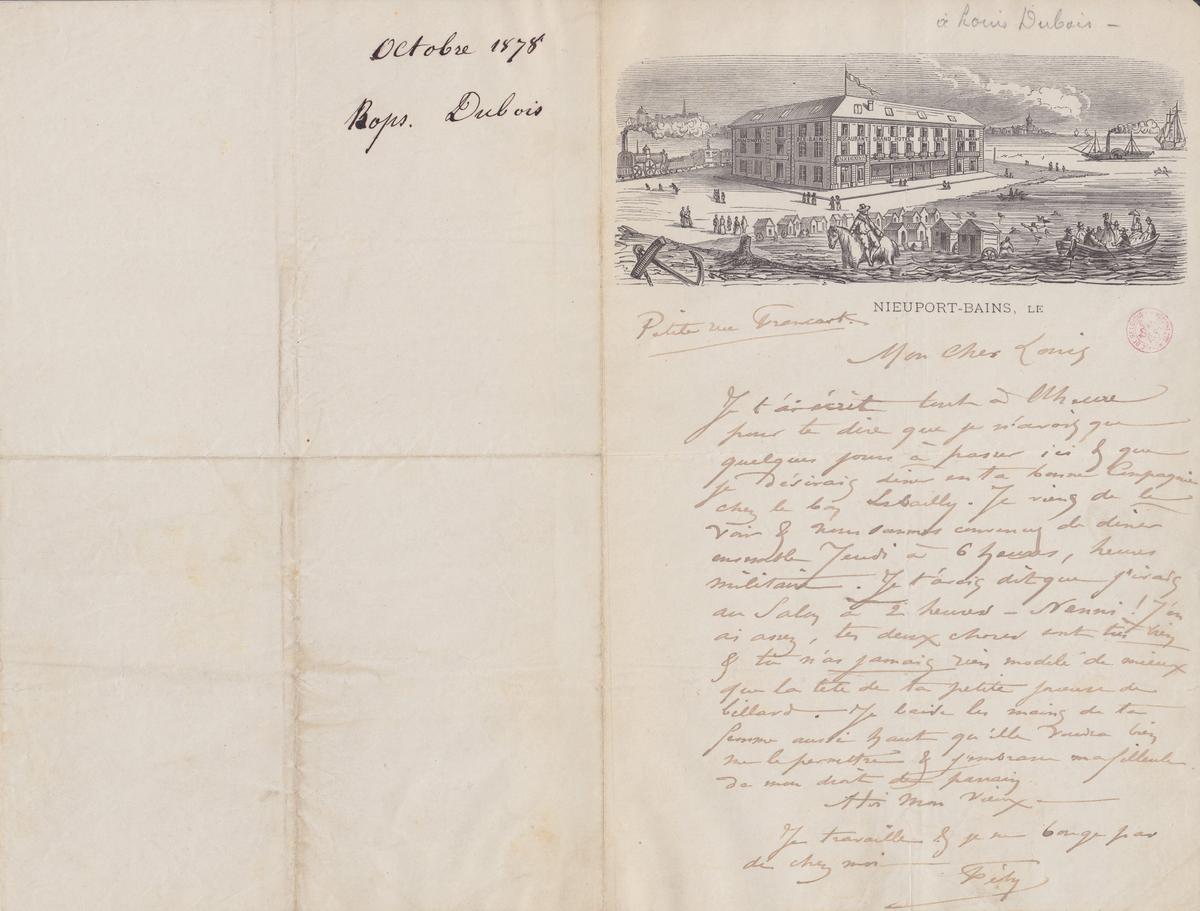 Octobre 1878
Rops. Dubois
à Louis Dubois –
RESTAURANT GRAND HÔTEL DES BAINS RESTAURANT
NIEUPORT-BAINS, LE
Petite rue Francart.
Mon cher Louis
Je t'ai écrit tout à l'heure
pour te dire que je n'avais que
quelques jours à passer ici & que
je désirais diner en ta bonne Compagnie
chez le bon Labailly. Je viens de le
voir & nous sommes convenus de diner
ensemble Jeudi à 6 heures, heures
militaire. Je t'avais dit que j'irais
au Salon à 2 heures – Nenni ! J'en
ai assez, tes deux choses sont très bien
& tu n'as jamais rien modelé de mieux
que la tête de ta petite joueuse de
billard. Je baise les mains de ta
femme aussi haut qu'elle voudra bien
me le permettre & j'embrasse ma filleule
de mon droit de parrain
A toi mon vieux –
Je travaille & je ne bouge pas
de chez moi – Fély